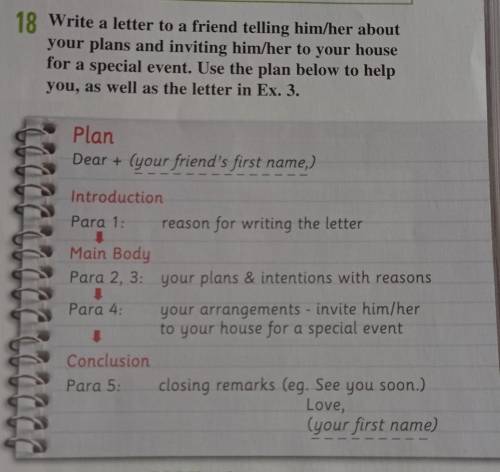 18 Write a letter to a friend telling him/her about
your plans and inviting him/her to your house
for a special event. Use the plan below to help
you, as well as the letter in Ex. 3.
Plan
Dear + (your friend's first name,)
Introduction
Para 1: reason for writing the letter
Main Body
Para 2, 3: your plans & intentions with reasons
Para 4: your arrangements - invite him/her
to your house for a special event
Conclusion
Para 5: closing remarks (eg. See you soon.)
Love,
(your first name)